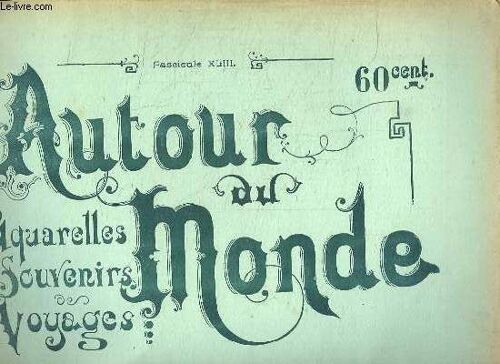 Le-livre.com
Fascicule XLIII.
60 cent.
Autour
du
Monde
Aquarelles
Souvenirs
de
Voyages